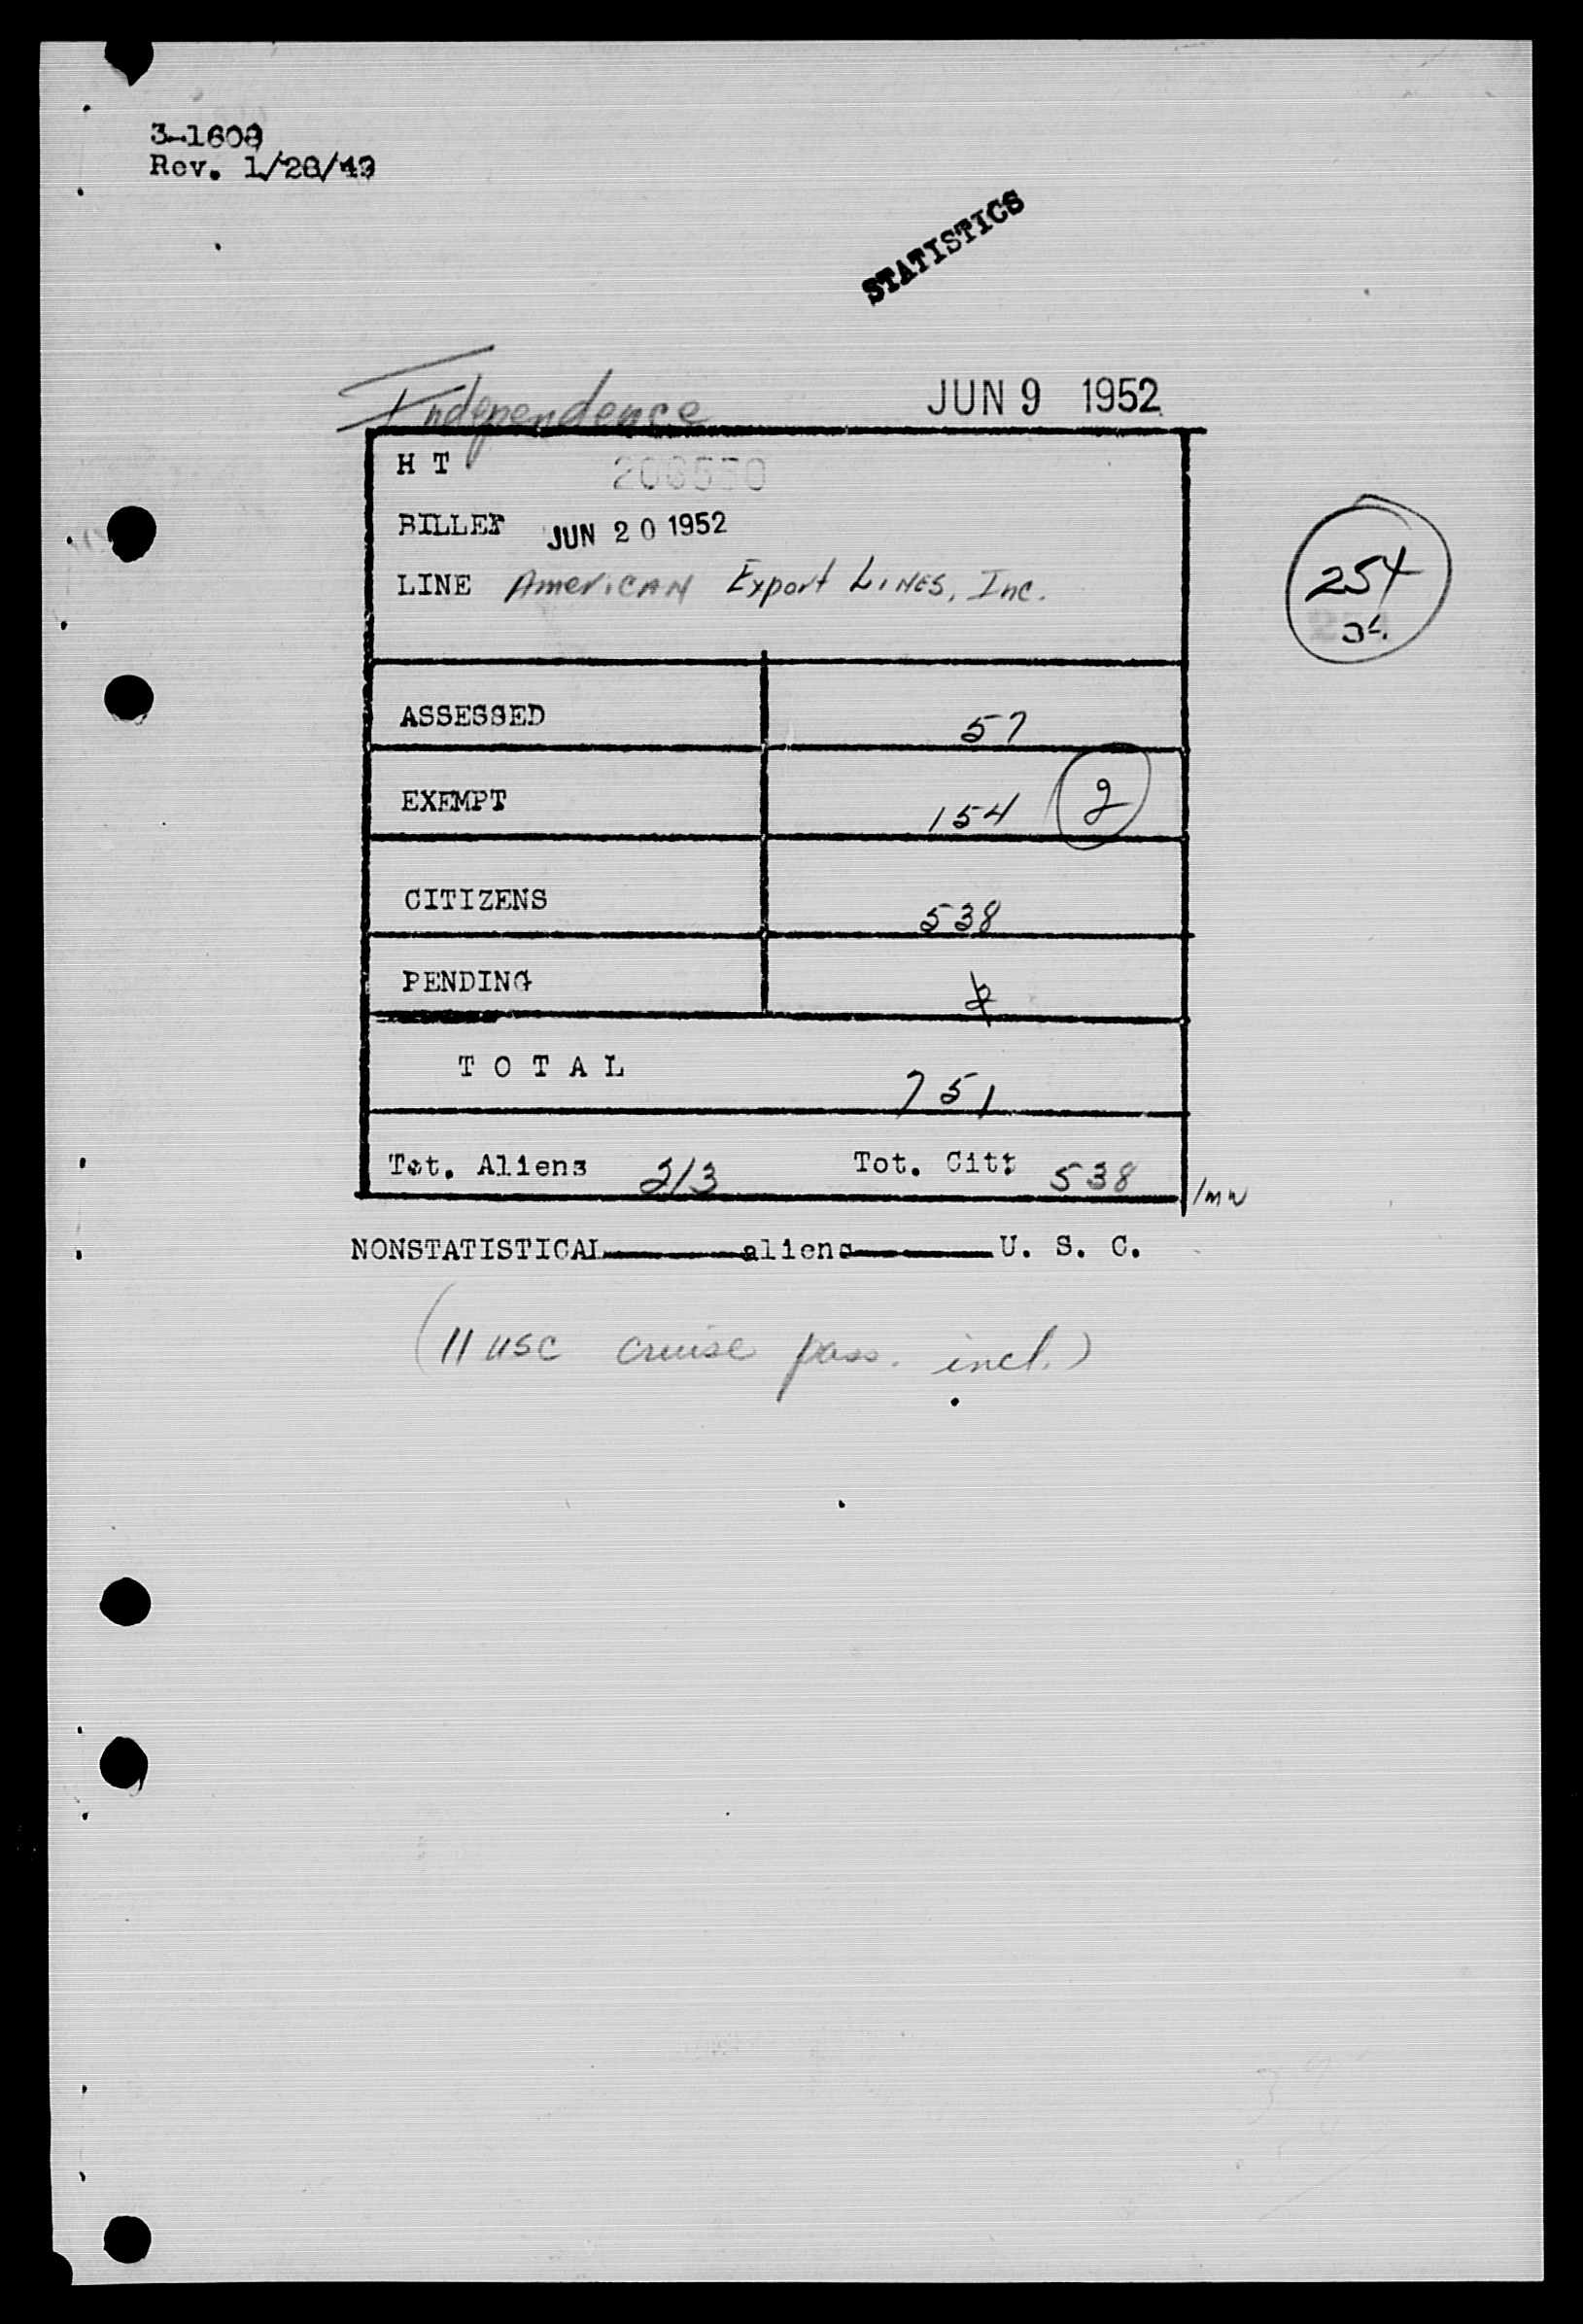 3-1608
Rev. 1/28/49
STATISTICS
Independence JUN 9 1952
H T
BILLET JUN 20 1952
LINE American Export Lines, Inc.
254
ASSESSED 57
EXEMPT 154 2
CITIZENS 538
PENDING
TOTAL 751
Tot. Aliens 213 Tot. Cit: 538
/mw
NONSTATISTICAL aliens U. S. C.
(11 USC cruise pass. incl.)